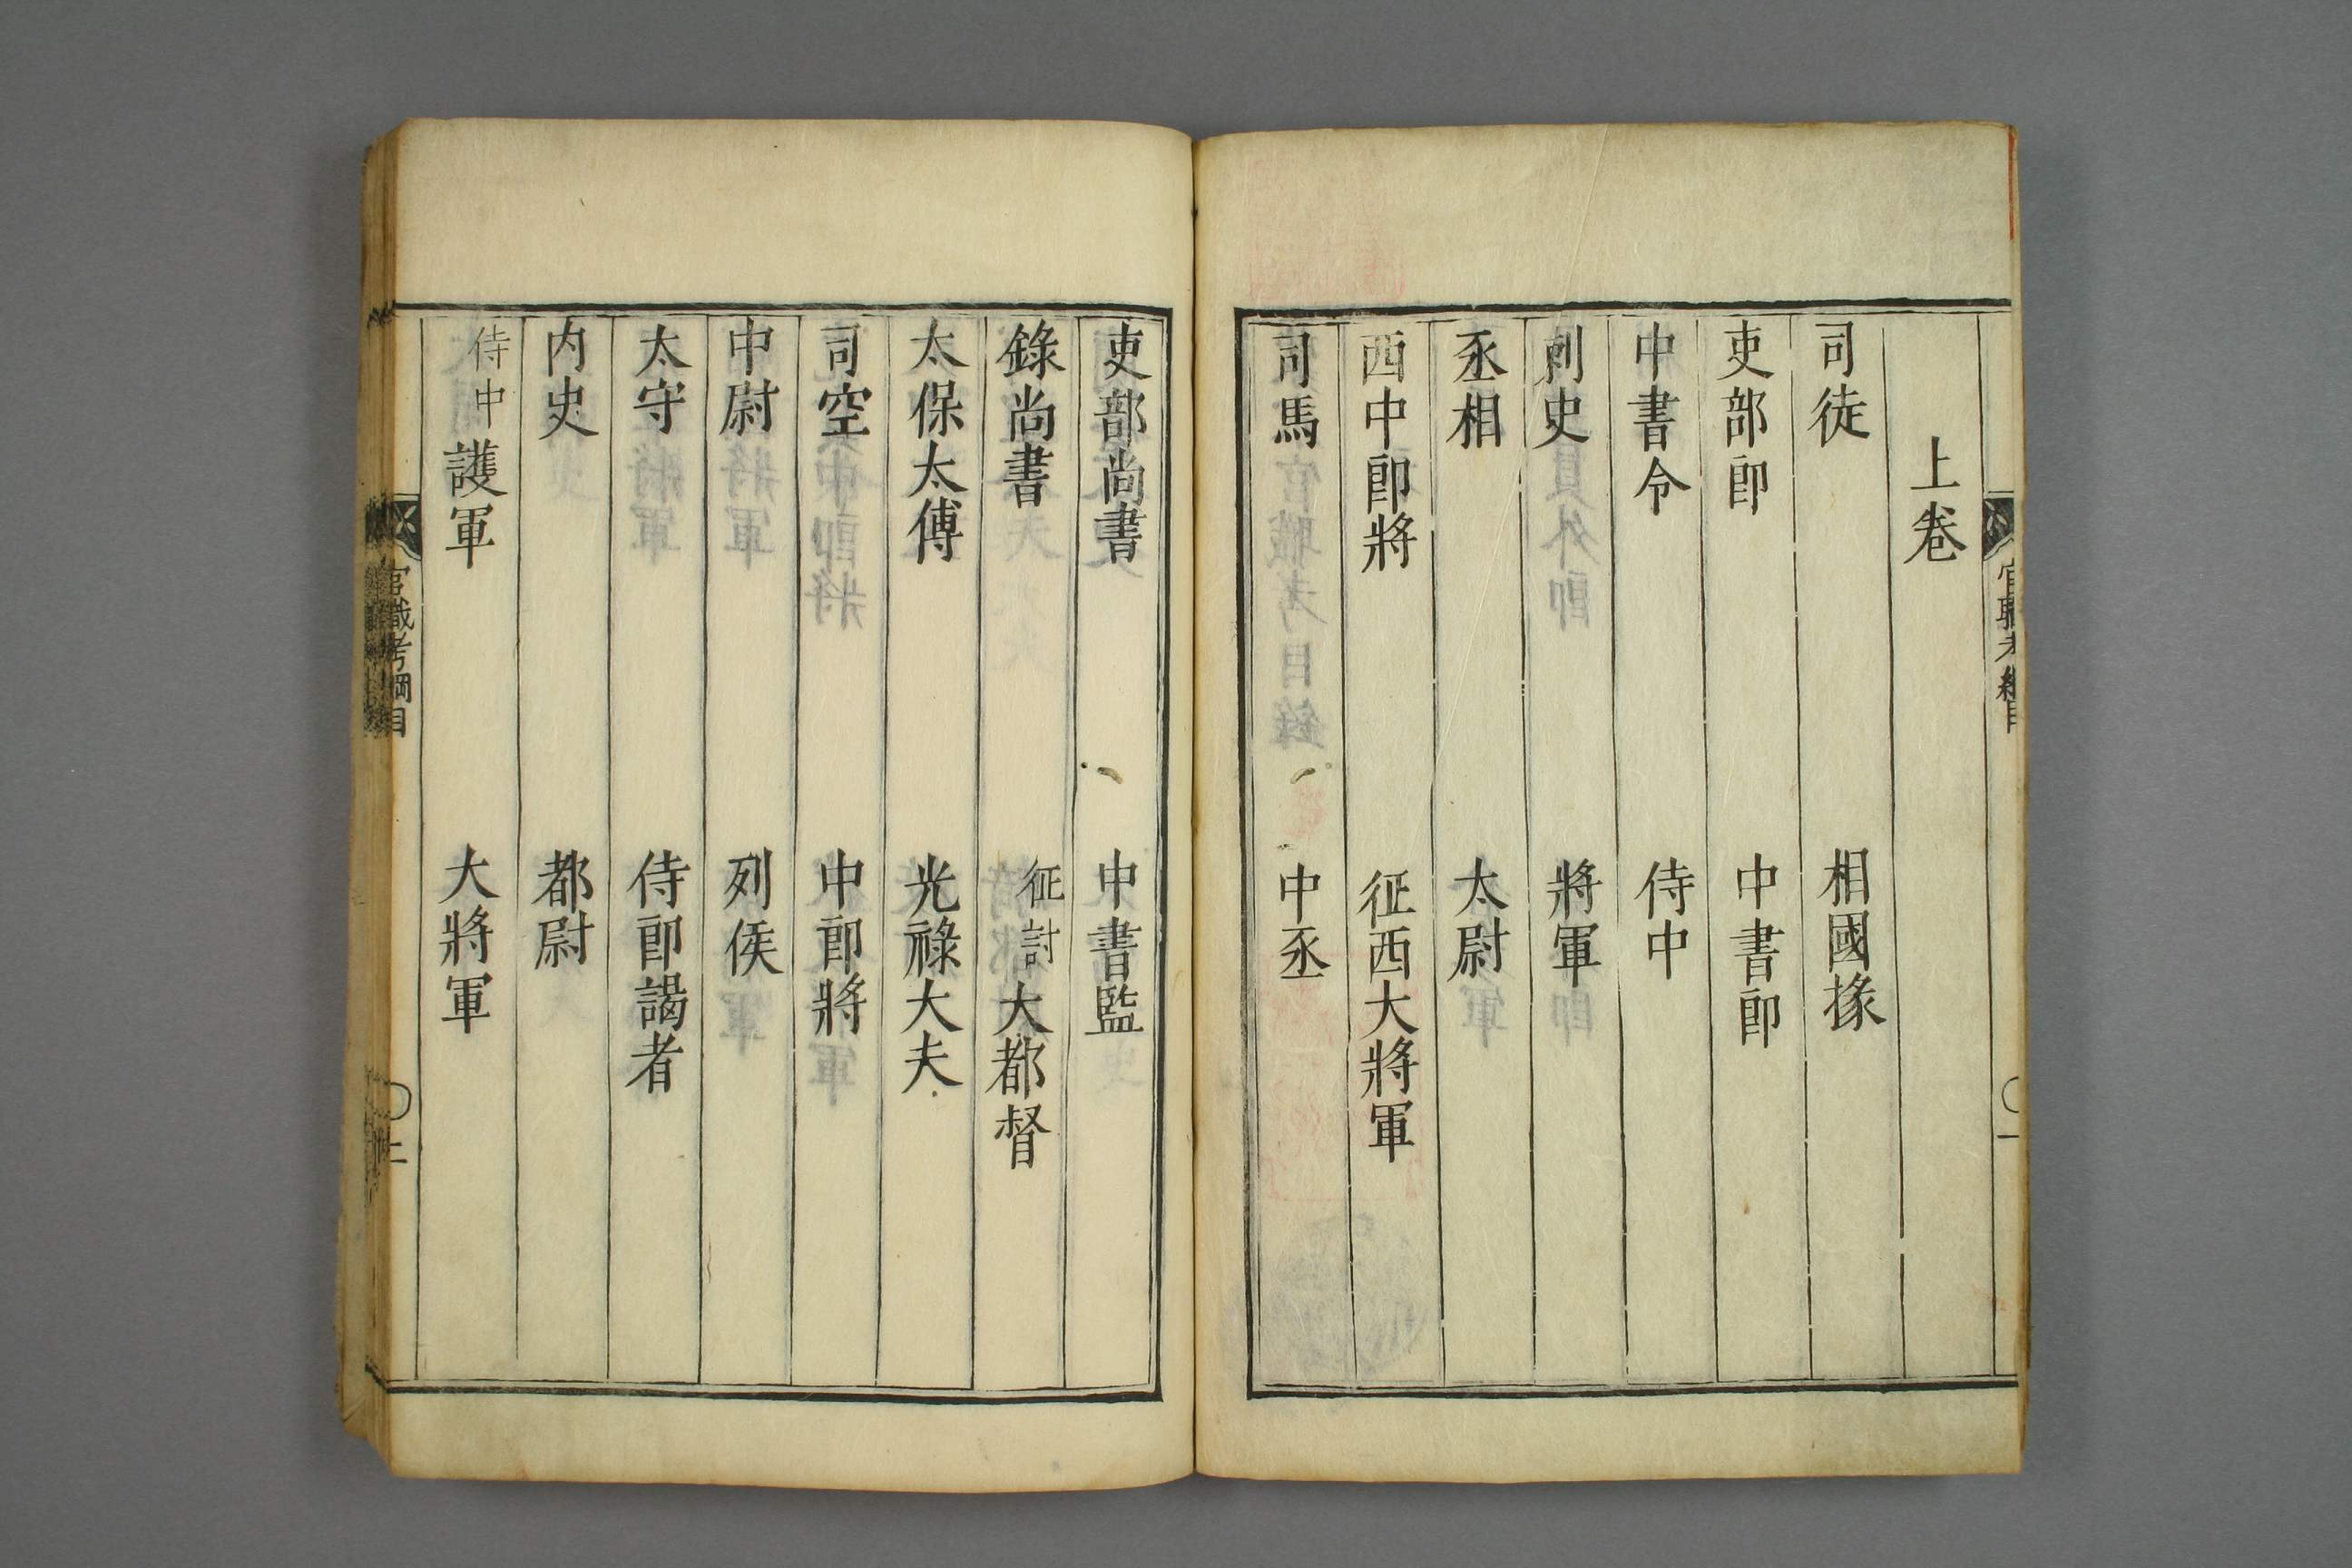 上卷
司徒　相國掾
吏部郎　中書郎
中書令　侍中
刺史　將軍
丞相　太尉
西中郎將　征西大將軍
司馬　中丞
吏部尚書　中書監
錄尚書　征討大都督
太保太傅　光祿大夫
司空　中郎將
中尉　列侯
太守　侍郎謁者
内史　都尉
侍中護軍　大將軍
官職考綱目　二